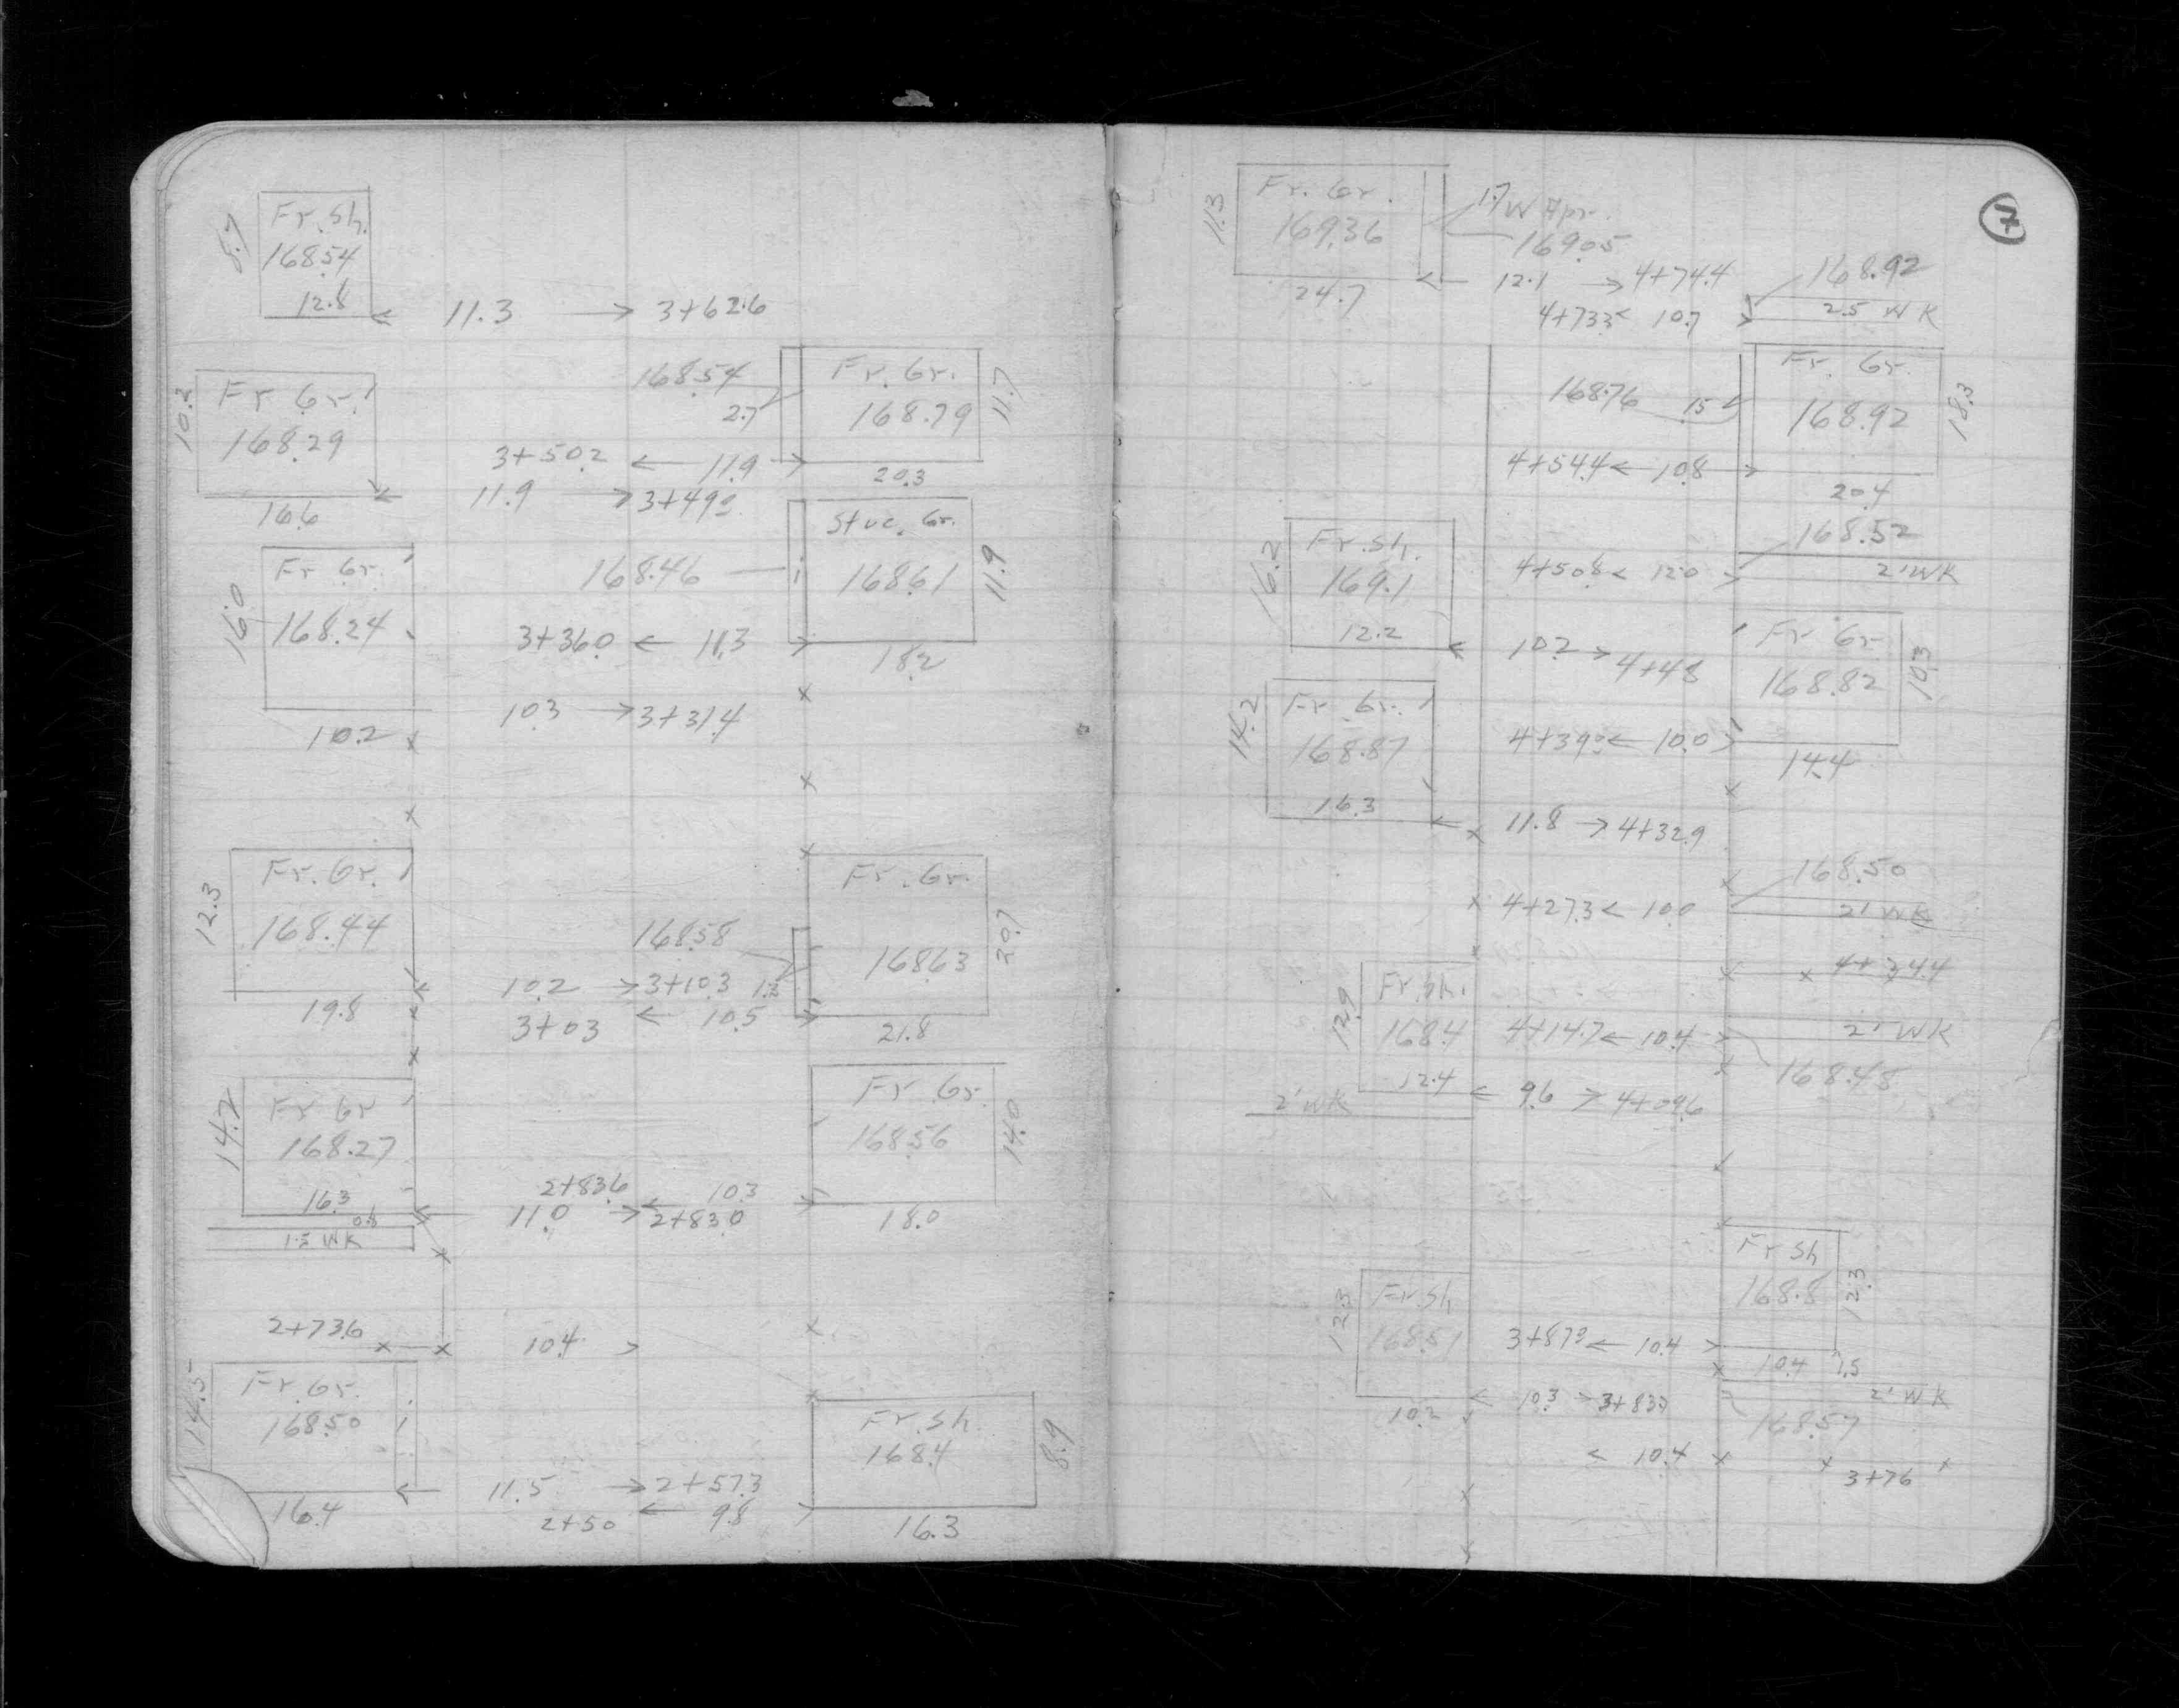 8.7
Fr. Sh.
168.54
12.8
11.3 → 3+62.6
10.2
Fr Gr.
168.29
16.6
168.54
2.7
Fr. Gr.
168.79
11.7
3+50.2 ← 11.9
20.3
11.9 → 3+49.0
16.0
Fr Gr.
168.24
10.2
168.46
Stuc. Gr.
168.61
11.9
3+36.0 ← 11.3
18.2
10.3 → 3+31.4
12.3
Fr. Gr.
168.44
19.8
168.58
Fr. Gr.
168.63
20.7
10.2 → 3+10.3
3+03 ← 10.5
21.8
14.2
Fr Gr
168.27
16.3
1.5 WK
Fr Gr.
168.56
14.0
2+83.6 ← 10.3
11.0 → 2+83.0
18.0
2+73.6
10.4 >
14.5
Fr. Gr.
168.50
16.4
Fr. Sh.
168.4
8.9
11.5 → 2+57.3
2+50 ← 9.8
16.3
7
11.3
Fr. Gr.
169.36
24.7
1.7 W Apr.
169.05
12.1 → 4+74.4
168.92
4+73.3 < 10.7
2.5 WK
168.76
1.5
Fr. Gr.
168.92
18.3
4+54.4 ← 10.8
20.4
168.52
16.2
Fr. Sh.
169.1
12.2
4+50.8 < 12.0
2' WK
10.2 → 4+48
Fr Gr
168.82
10.3
14.2
Fr Gr.
168.87
16.3
4+39.0 ← 10.0
14.4
11.8 → 4+32.9
168.50
4+27.3 < 10.0
2' WK
12.9
Fr. Sh.
168.4
12.4
4+14.7 ← 10.4
2' WK
168.48
2' WK
9.6 > 4+09.6
12.3
Fr Sh
168.51
10.2
Fr Sh
168.8
12.3
3+87.9 ← 10.4
10.4
1.5
2' WK
10.3
168.57
< 10.4
3+76